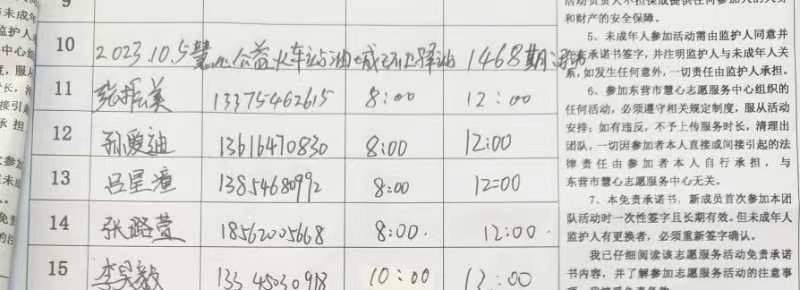 9
10 2023.10.5慧心公益火车站 1468期
11 张振英 13375462615 8:00 12:00
12 孙爱迪 13616470830 8:00 12:00
13 吕星 13854680992 8:00 12:00
14 张璐萱 18562005668 8:00. 12:00.
15 李昊毅 10:00 12:00
和财产的安全保障。
5、未成年人参加活动需由监护人同意并
承诺书签字，并注明监护人与未成年人关
系,如发生任何意外，一切责由监护人承担。
6、参加东营市慧心志愿服务中心组织的
任何活动，必须遵守相关规定制度，服从活动
安排；如有违反，不予上传服务时长，清理出
团队，一切因参加者本人直接或间接引起的法
律责任由参加者本人自行承担，与
东营市慧心志愿服务中心无关。
7、本免责承诺书，新成员首次参加本团
队活动时一次性签字且长期有效。但未成年人
监护人有更换者，必须重新签字确认。
我已仔细阅读该志愿服务活动免责承诺
书内容，并了解参加志愿服务活动的注意事